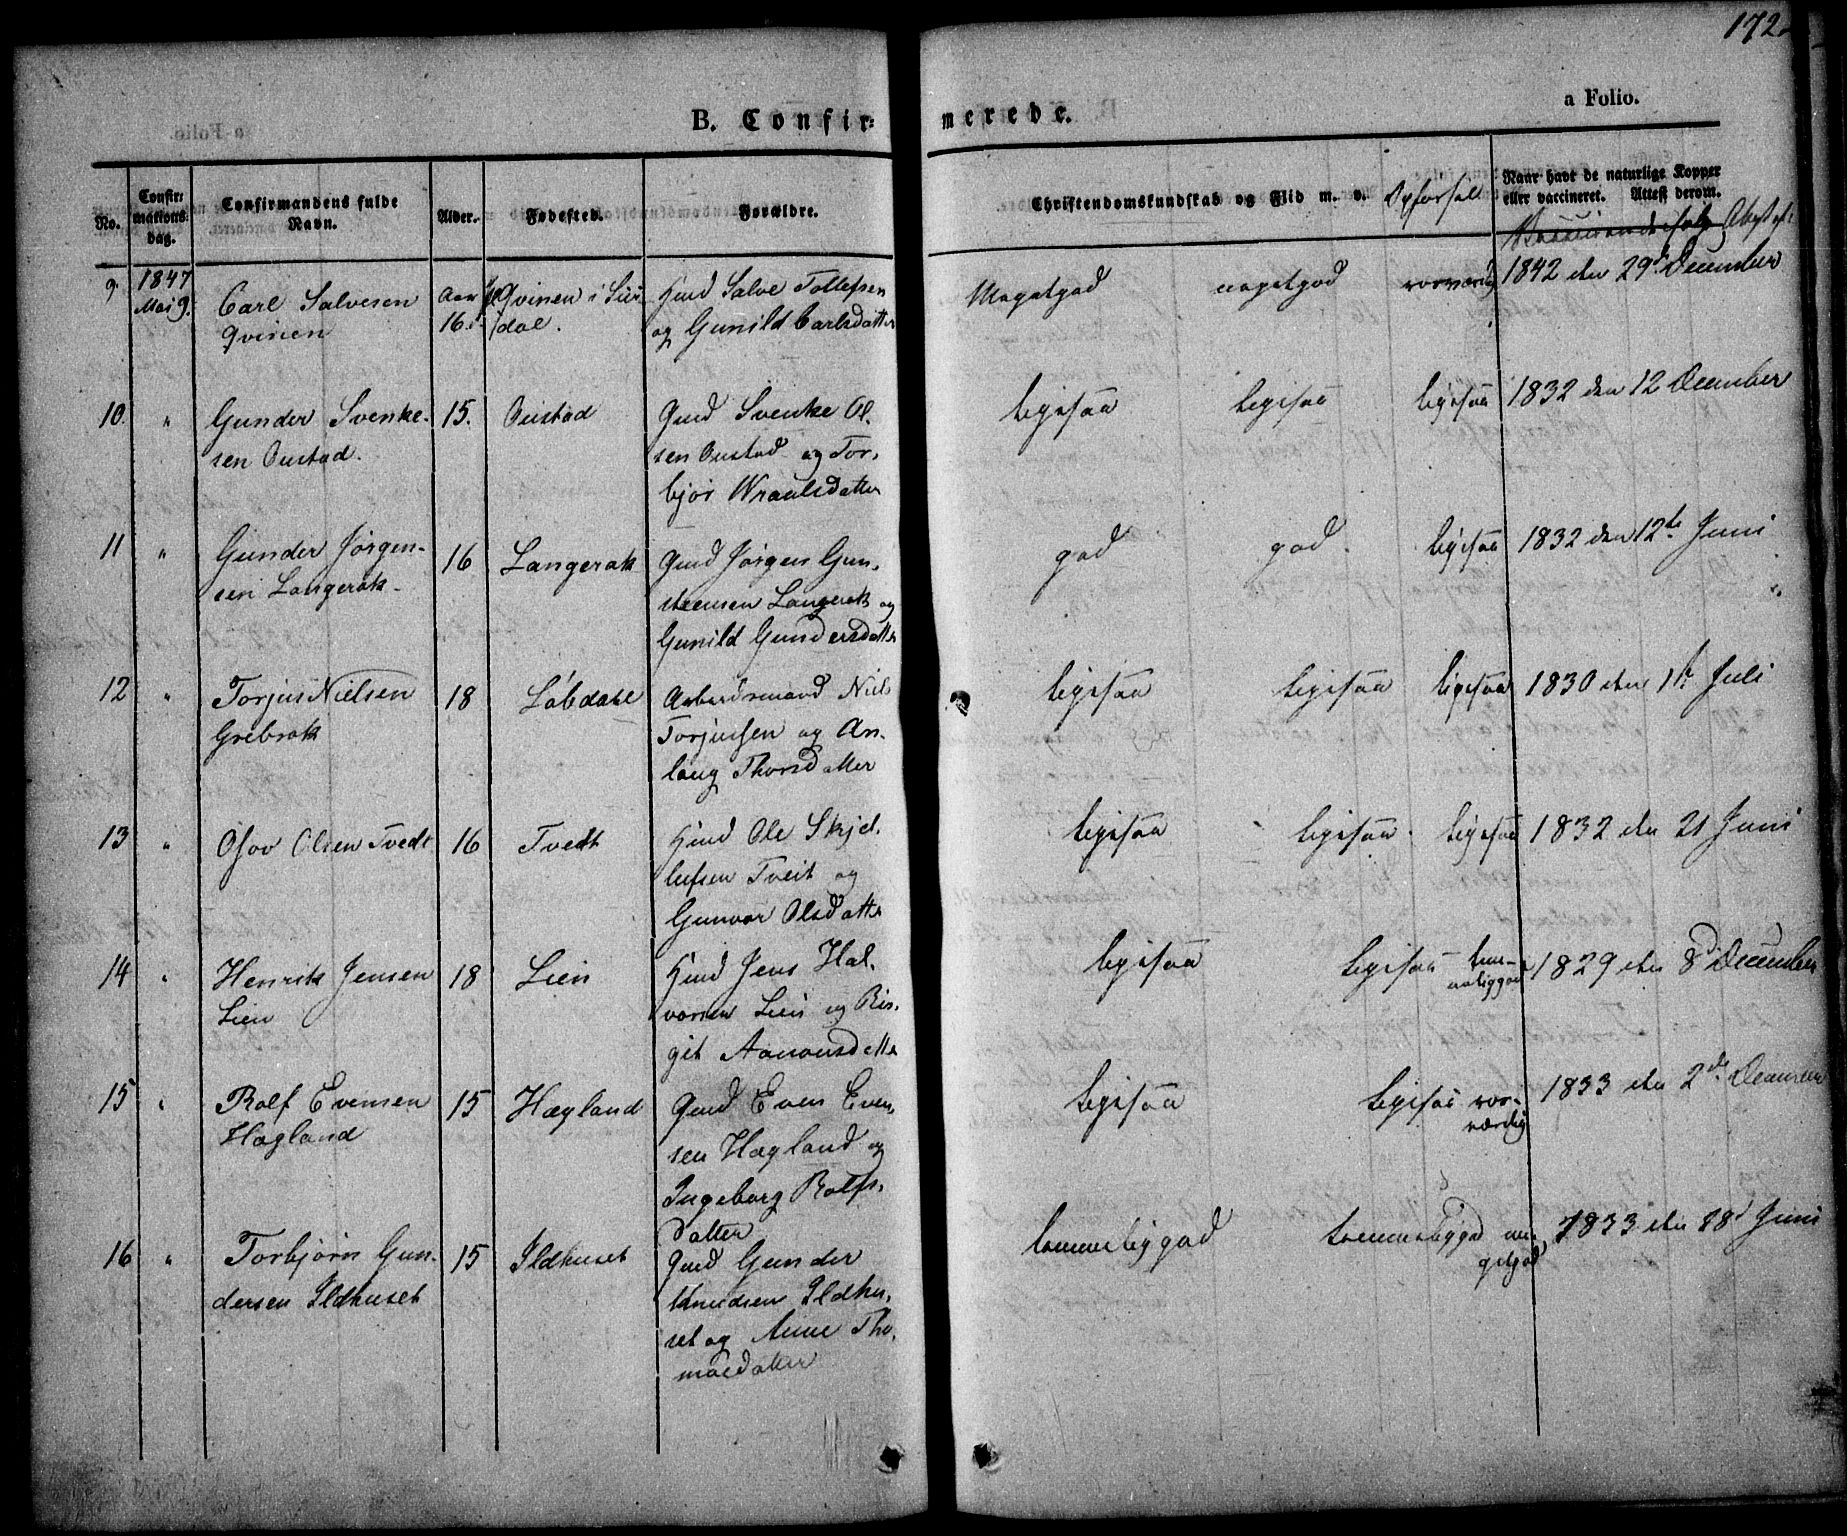 172.
a Folio.
B. Confirmerede.
No.
Confirmationsdag.
Confirmandens fulde Navn.
Alder.
Fødested.
Forældre.
Christendomskundskab og Flid m. v.
Opførsel
Naar havt de naturlige Kopper eller vaccineret. Attest derom.
9. 1847 Mai 9. Carl Salvesen Qvinen Aar 16. Qvinen i Siirdal. Hmd Salve Tollefsen og Gunild Carlsdatter Megetgod megetgod 1842 den 29d December
10. " Gunder Svenkesen Oustad. 15. Oustad Gmd Svenke Olsen Oustad og Torbjør Wraalsdatter ligesaa ligesaa ligesaa 1832 den 12 December
11 " Gunder Jørgensen Langerak. 16 Langerak Gmd Jørgen Gunsteensen Langerak og Gunild Gundersdatter god god. ligesaa 1832 den 12te Juni
12 " Torjus Nielsen Grebrok 18 Løbdahl Arbeidsmand Niels Torjussen og Anlaug Thorsdatter ligesaa ligesaa ligesaa 1830 den 1te Juli
13 " Osov Olsen Tvedt 16 Tvedt Hmd Ole Skjellefsen Tveit og Gunvor Olsdatter ligesaa ligesaa ligesaa 1832 den 21 Juni
14 " Henrik Jensen Lien 18 Lien Hmd Jens Halvorsen Lien og Birgit Aanonsdatter ligesaa ligesaa temmeliggod 1829 den 8d December
15 " Rolf Evensen Hægland 15 Hægland Gmd Even Evensen Hægland og Ingeborg Rolfsdatter ligesaa ligesaa 1833 den 2de December
16 " Torbjørn Gundersen Ildhuset 15 Ildhuset Gmd Gunder Knudsen Ildhuset og Anne Thomasdatter temmeliggod temmeliggod megetgod 1833 den 18d Juni